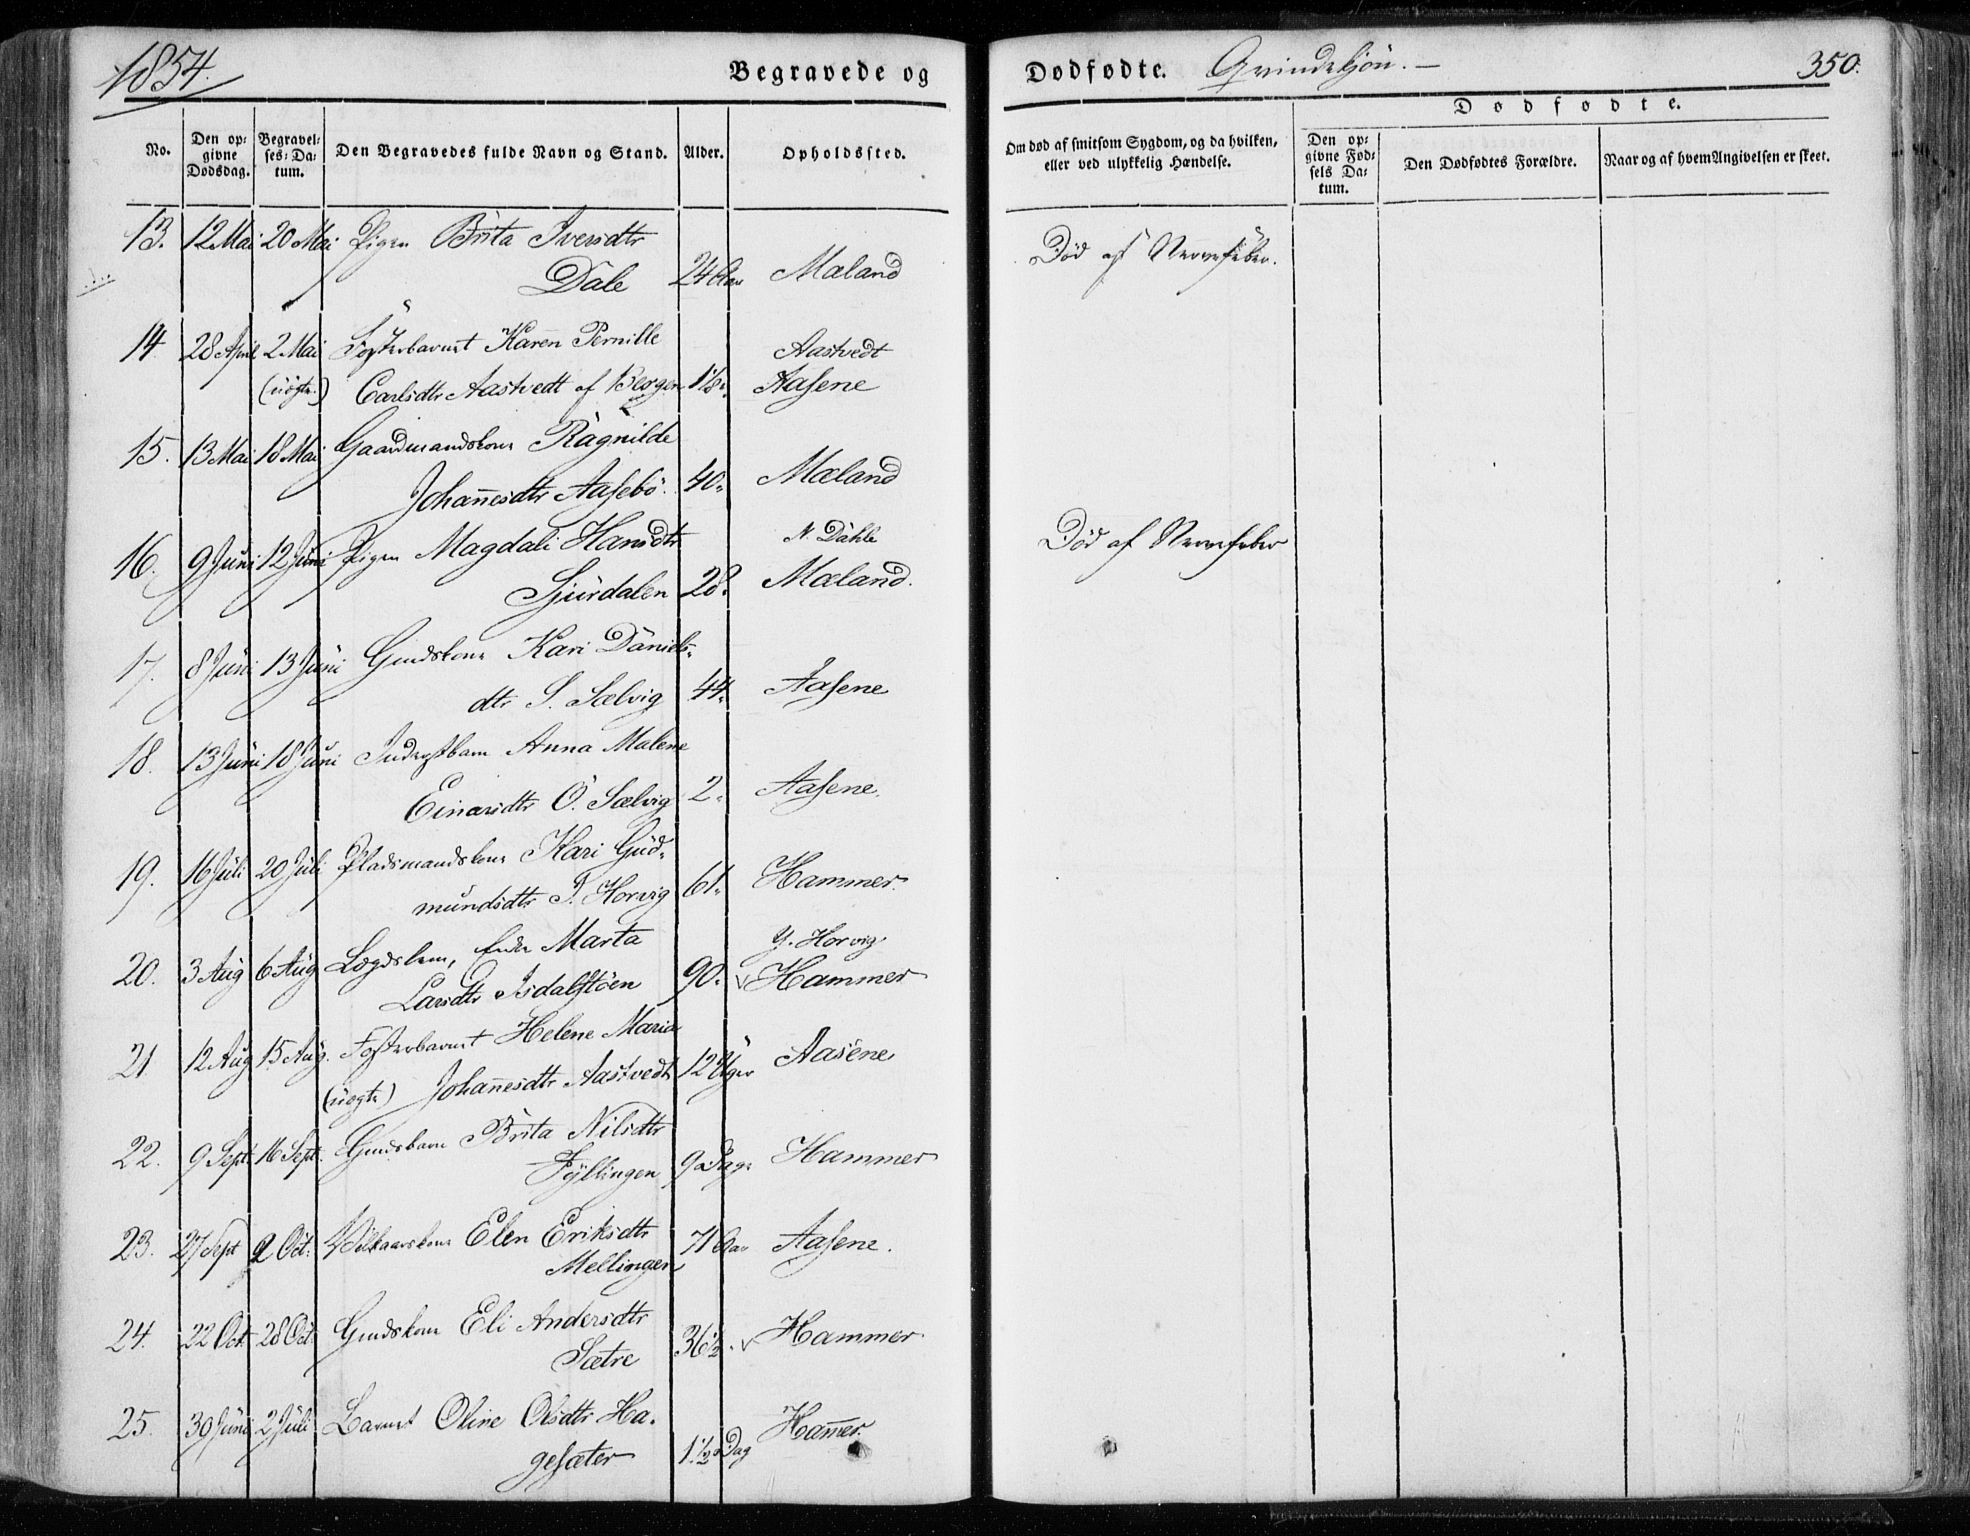 1854.
Begravede og
Dødfødte. Qvindekjön.
350.
No.
Den op-
givne
Dødsdag.
Begravel-
ses-Da-
tum.
Den Begravedes fulde Navn og Stand.
Alder.
Opholdssted.
Om død af smitsom Sygdom, og da hvilken,
eller ved ulykkelig Hændelse.
Dødfødte.
Den op-
givne Fød-
sels Da-
tum.
Den Dødfødtes Forældre.
Naar og af hvem Angivelsen er skeet.
13. 12 Mai 20 Mai Pigen Brita Iversdtr
Dale 24 Aar Mæland Død af Nervefeber.
14 28 April 2 Mai Fosterbarnet Karen Pernille Aastvedt
(uægte.) Carlsdtr Aastvedt af Bergen Aasene
15. 13 Mai 18 Mai Gaardmandskone Ragnilde
Johañesdtr Aasebö. 40. Mæland
16. 9 Juni 12 Juni Pigen Magdali Hansdtr N. Dahle Død af Nervefeber
Sjurdalen 28. Mæland.
17. 8 Juni 13 Juni Gmdskone Kari Daniels-
dtr S. Sælvig 44. Aasene
18. 13 Juni 18 Juni Inderstbarn Anna Malene
Einarsdtr Ö. Sælvig 2. Aasene.
19. 16 Juli 20 Juli Pladsmandskone Kari Gud-
mundsdtr Horvig 61. Hammer.
20. 3 Aug 6 Aug Lægdslem, Enke Marta Y. Horvig
Larsdtr Isdalstöen 90. Hammer
21 12 Aug 15 Aug. Fosterbarnet Helene Maria
(uægte) Johañesdtr Aastvedt 12 Uger Aasene
22. 9 Sept. 16 Sept. Gmdsbarn Brita Nilsdtr
Fyllingen 9 Dage Hammer
23. 27 Sept 2 Oct. Vilkaarskone Elen Eriksdtr
Mellingen 71 Aar Aasene.
24. 22 Oct. 28 Oct. Gmdskone Eli Andersdtr
Sætre 36 1/2 Hammer
25. 30 Juni 2 Juli Barnet Oline Olsdtr Ha-
gesæter 1 1/2 Dag Ham̃er.